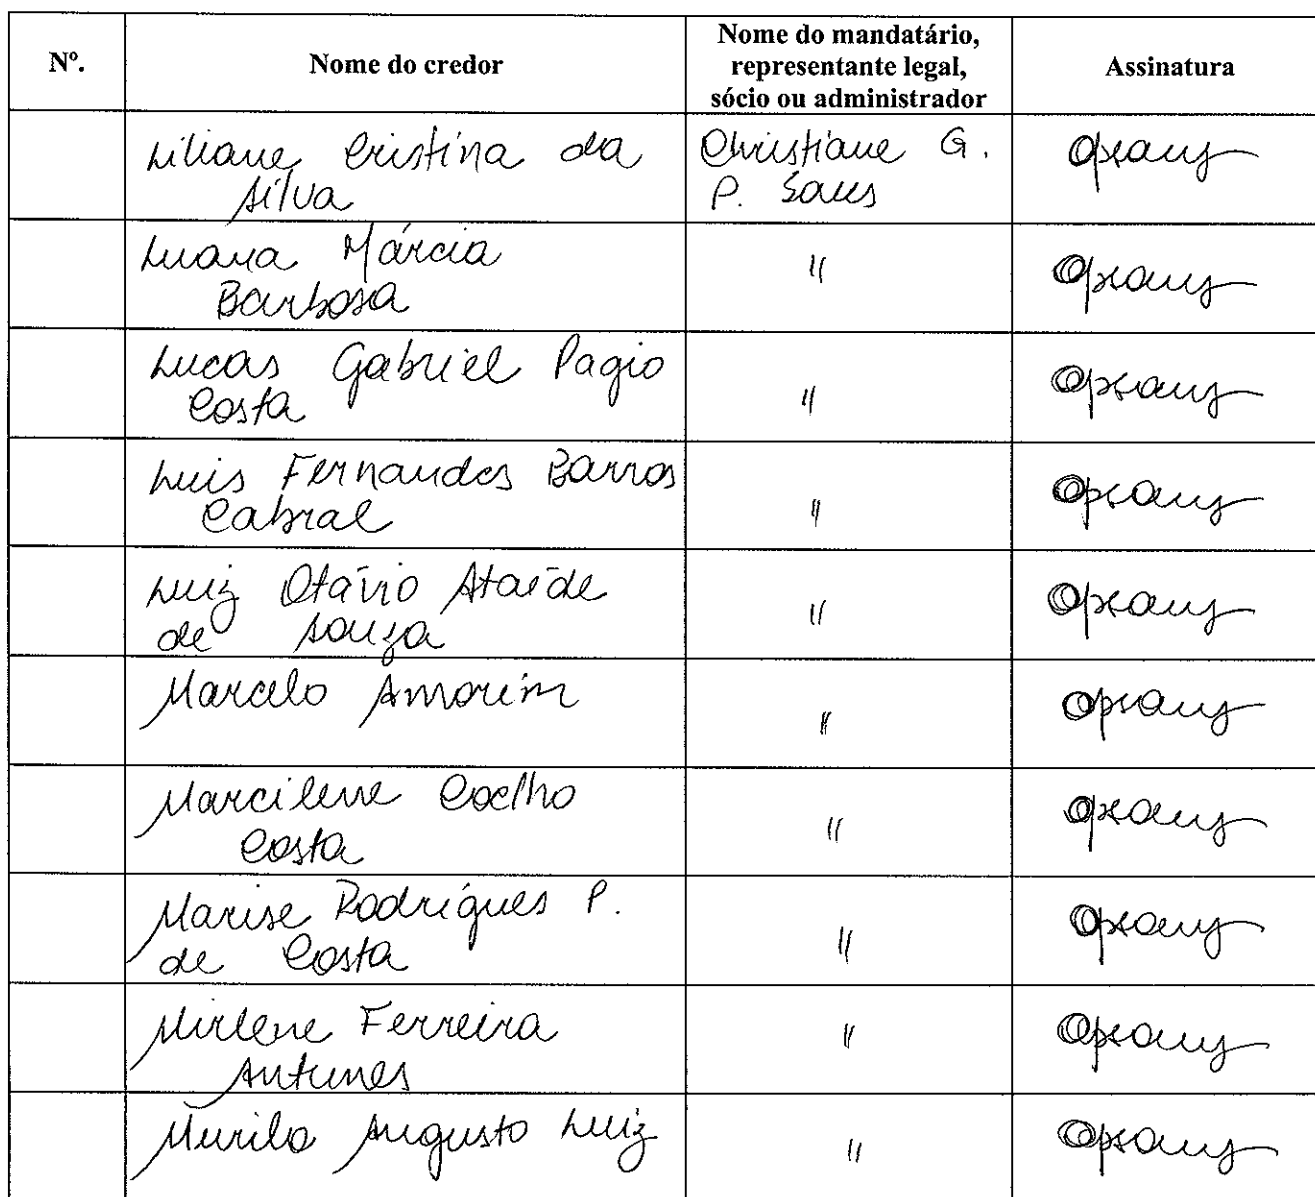 Nº.
Nome do credor
Nome do mandatário,
representante legal,
sócio ou administrador
Assinatura
Liliane Cristina da
Silva
Christiane G.
P.
Luana Márcia
Barbosa
"
Lucas Gabriel Pagio
Costa
"
Luis Fernandes Barros
Cabral
"
Luiz Otávio Ataíde
de Souza
"
Marcelo Amorim
"
Marcilene Coelho
Costa
"
Marise Rodrigues P.
de Costa
"
Mirlene Ferreira
Antunes
"
Murilo Augusto Luiz
"